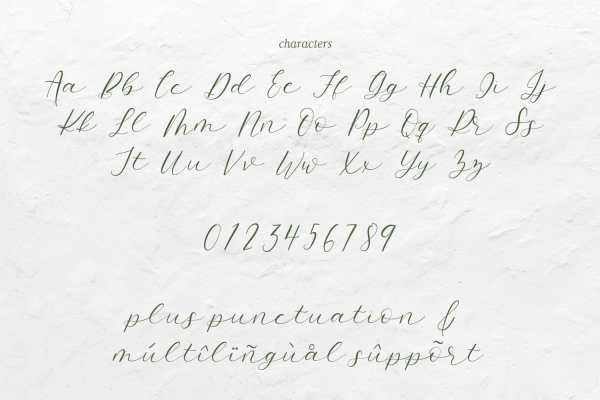 characters
Aa Bb Cc Dd Ee Ff Gg Hh Ii Jj
Kk Ll Mm Nn Oo Pp Qq Rr Ss
Tt Uu Vv Ww Xx Yy Zz
0123456789
plus punctuation &
múltîlïñgùål sûppõrt